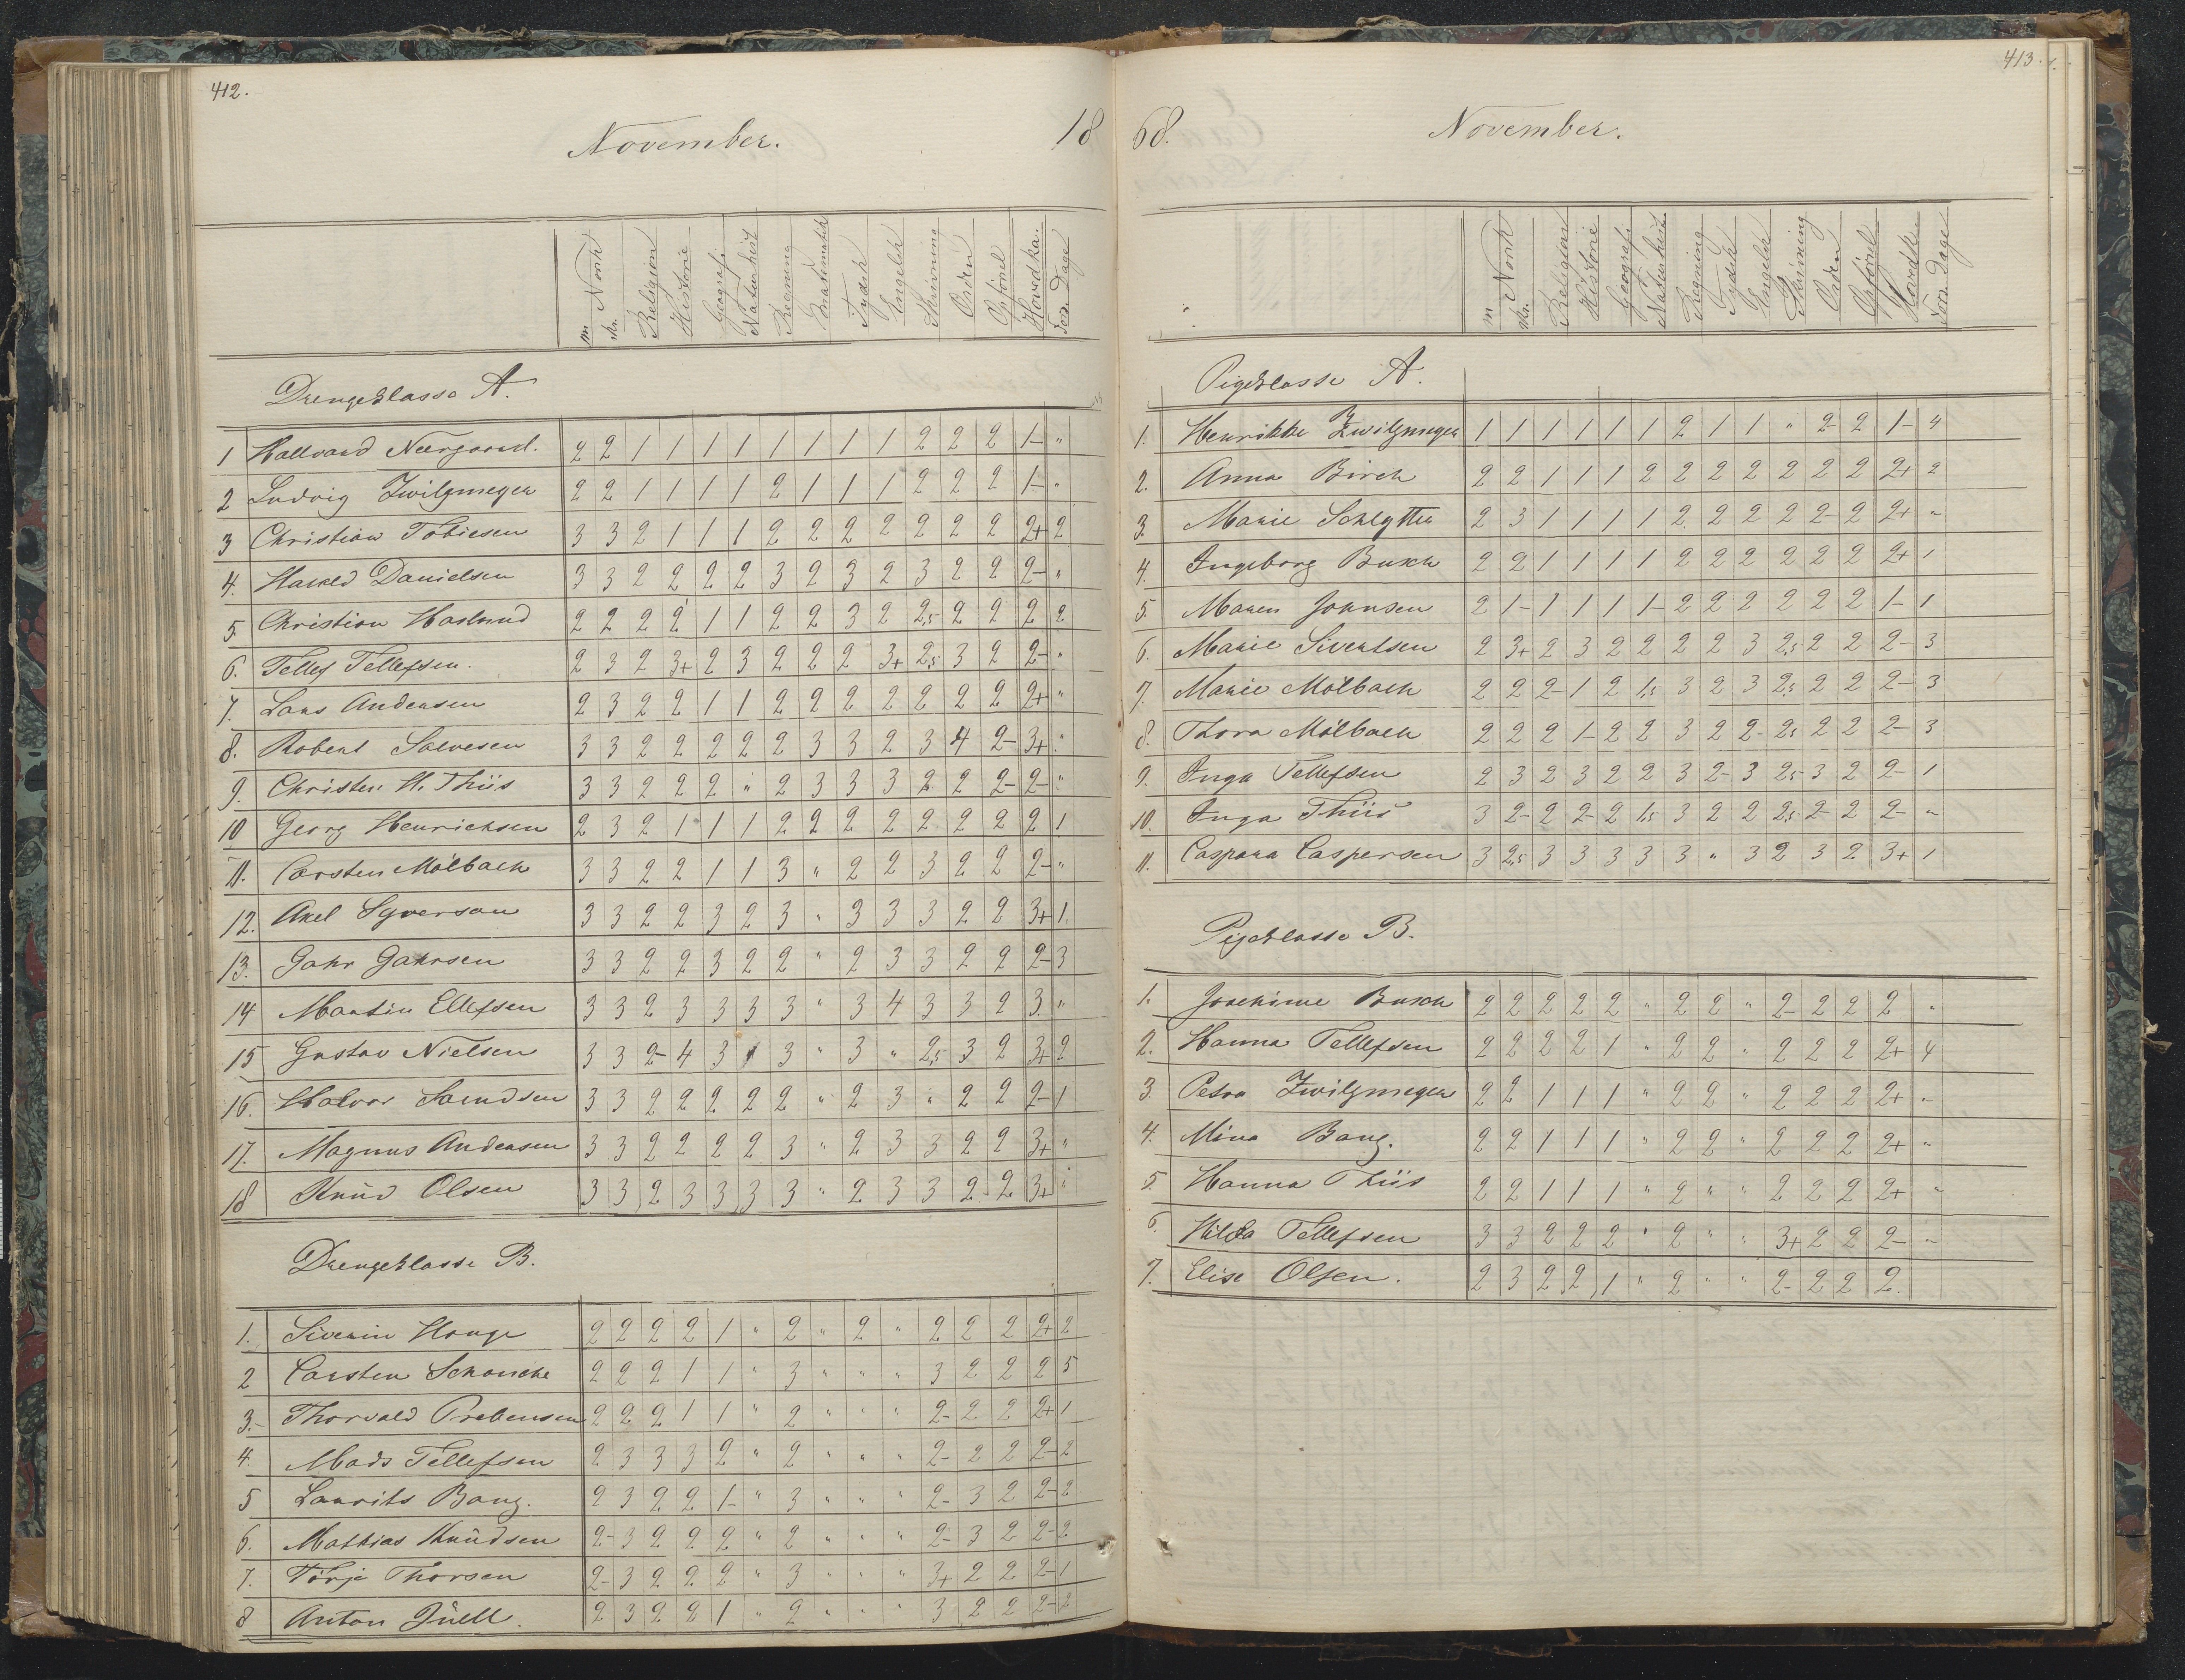 412.
November. 18
m Norsk
skr.
Religion
Historie
Geografi
Naturhist
Regning
Mathematik
Tydsk
Engelsk
Skrivning
Orden
Opførsel
Hovedka.
For. Dage
Drengeklasse A.
1 Hallvard Neergaard. 2 2 1 1 1 1 1 1 1 1 2 2 2 1- "
2 Ludvig Zwilgmeyer 2 2 1 1 1 1 2 1 1 1 2 2 2 1- "
3 Christian Tobiesen 3 3 2 1 1 1 2 2 2 2 2 2 2 2+ 2
4. Harald Danielsen 3 3 2 2 2 2 3 2 3 2 3 2 2 2- "
5. Christian Haslund 2 2 2 2 1 1 2 2 3 2 2,5 2 2 2 2
6. Tellef Tellefsen. 2 3 2 3+ 2 3 2 2 2 3+ 2,5 3 2 2- "
7. Lars Andersen 2 3 2 2 1 1 2 2 2 2 2 2 2 2+ "
8. Robert Salvesen 3 3 2 2 2 2 2 3 3 2 3 4 2- 3+ "
9. Christen H. Thiis 3 3 2 2 2 " 2 3 3 3 2 2 2- 2- "
10 Georg Henrichsen 2 3 2 1 1 1 2 2 2 2 2 2 2 2 1
11. Carsten Mölbach 3 3 2 2 1 1 3 " 2 2 3 2 2 2- "
12. Axel Syverson 3 3 2 2 3 2 3 " 3 3 3 2 2 3+ 1.
13. Jahr Jahrsen 3 3 2 2 3 2 2 " 2 3 3 2 2 2- 3
14 Martin Ellefsen 3 3 2 3 3 3 3 " 3 4 3 3 2 3. "
15 Gustav Nielsen 3 3 2- 4 3 1 3 " 3 " 2,5 3 2 3+ 2
16. Halvor Samdsen 3 3 2 2 2 2 2 " 2 3 " 2 2 2- 1
17. Magnus Andersen 3 3 2 2 2 2 3 " 2 3 3 2 2 3+ "
18 Knud Olsen 3 3 2 3 3 3 3 " 2 3 3 2- 2 3+ "
Drengeklasse B.
1. Siverin Hauge 2 2 2 2 1 " 2 " 2 " 2 2 2 2+ 2
2 Carsten Schancke 2 2 2 1 1 " 3 " " " 3 2 2 2 5
3. Thorvald Prebensen 2 2 2 1 1 " 2 " " " 2- 2 2 2+ 1
4. Mads Tellefsen 2 3 3 3 2 " 2 " " " 2- 2 2 2- 2
5 Laurits Bang. 2 3 2 2 1- " 3 " " " 2- 3 2 2- 2
6. Mathias Knudsen 2- 3 2 2 2 " 2 " " " 2- 3 2 2- 2
7. Törje Thorsen 2- 3 2 2 2 " 3 " " " 3+ 2 2 2- 1
8 Anton Juell. 2 3 2 2 1 " 2 " " " 3 2 2 2- 2
413.
68. November.
m Norsk
skr.
Religion
Historie
Geografi
Naturhist
Regning
Tydsk
Engelsk
Skrivning
Orden
Opførsel
Hovedk.
For. Dage
Pigeklasse A.
1. Henrikke B Zwilgmeyer 1 1 1 1 1 1 2 1 1 " 2- 2 1- 4
2. Anna Birch 2 2 1 1 1 2 2 2 2 2 2 2 2+ 2
3. Marie Schlytter 2 3 1 1 1 1 2 2 2 2 2- 2 2+ "
4. Ingeborg Busch 2 2 1 1 1 1 2 2 2 2 2 2 2+ 1
5. Maren Johnsen 2 1- 1 1 1 1- 2 2 2 2 2 2 1- 1
6. Marie Sivertsen 2 3+ 2 3 2 2 2 2 3 2,5 2 2 2- 3
7. Marie Mölbach 2 2 2- 1 2 1,5 3 2 3 2,5 2 2 2- 3
8. Thora Mölbach 2 2 2 1- 2 2 3 2 2- 2,5 2 2 2- 3
9. Inga Tellefsen 2 3 2 3 2 2 3 2- 3 2,5 3 2 2- 1
10. Inga Thiis 3 2- 2 2- 2 1,5 3 2 2 2,5 2- 2 2- "
11. Caspara Caspersen 3 2,5 3 3 3 3 3 " 3 2 3 2 3+ 1
Pigeklasse B.
1. Joachime Busch 2 2 2 2 2 " 2 2 " 2- 2 2 2 "
2. Hanna Tellefsen 2 2 2 2 1 " 2 2 " 2 2 2 2+ 4
3. Petra Zwilgmeyer 2 2 1 1 1 " 2 2 " 2 2 2 2+ "
4. Mina Bang. 2 2 1 1 1 " 2 2 " 2 2 2 2+ "
5. Hanna Thiis 2 2 1 1 1 " 2 " " 2 2 2 2+ "
6. Hilda Tellefsen 3 3 2 2 2 " 2 " " 3+ 2 2 2- "
7. Elise Olsen. 2 3 2 2 1 " 2 " " 2- 2 2 2.